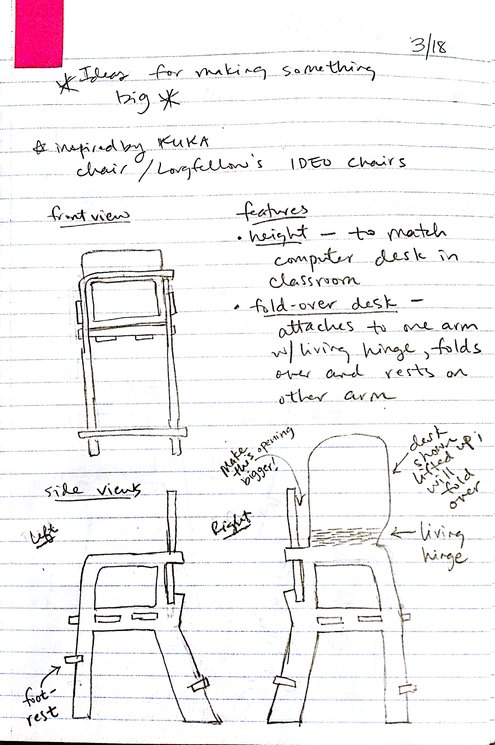 3/18
* Ideas for making something
big *
* inspired by KUKA
chair / Longfellow's IDEO chairs
front view
features
• height – to match
computer desk in
classroom
• fold-over desk –
attaches to one arm
w/ living hinge, folds
over and rests on
other arm
Make
this opening
bigger!
desk
shown
lifted up;
will
fold
over
living
hinge
side views
Left
Right
foot-
rest